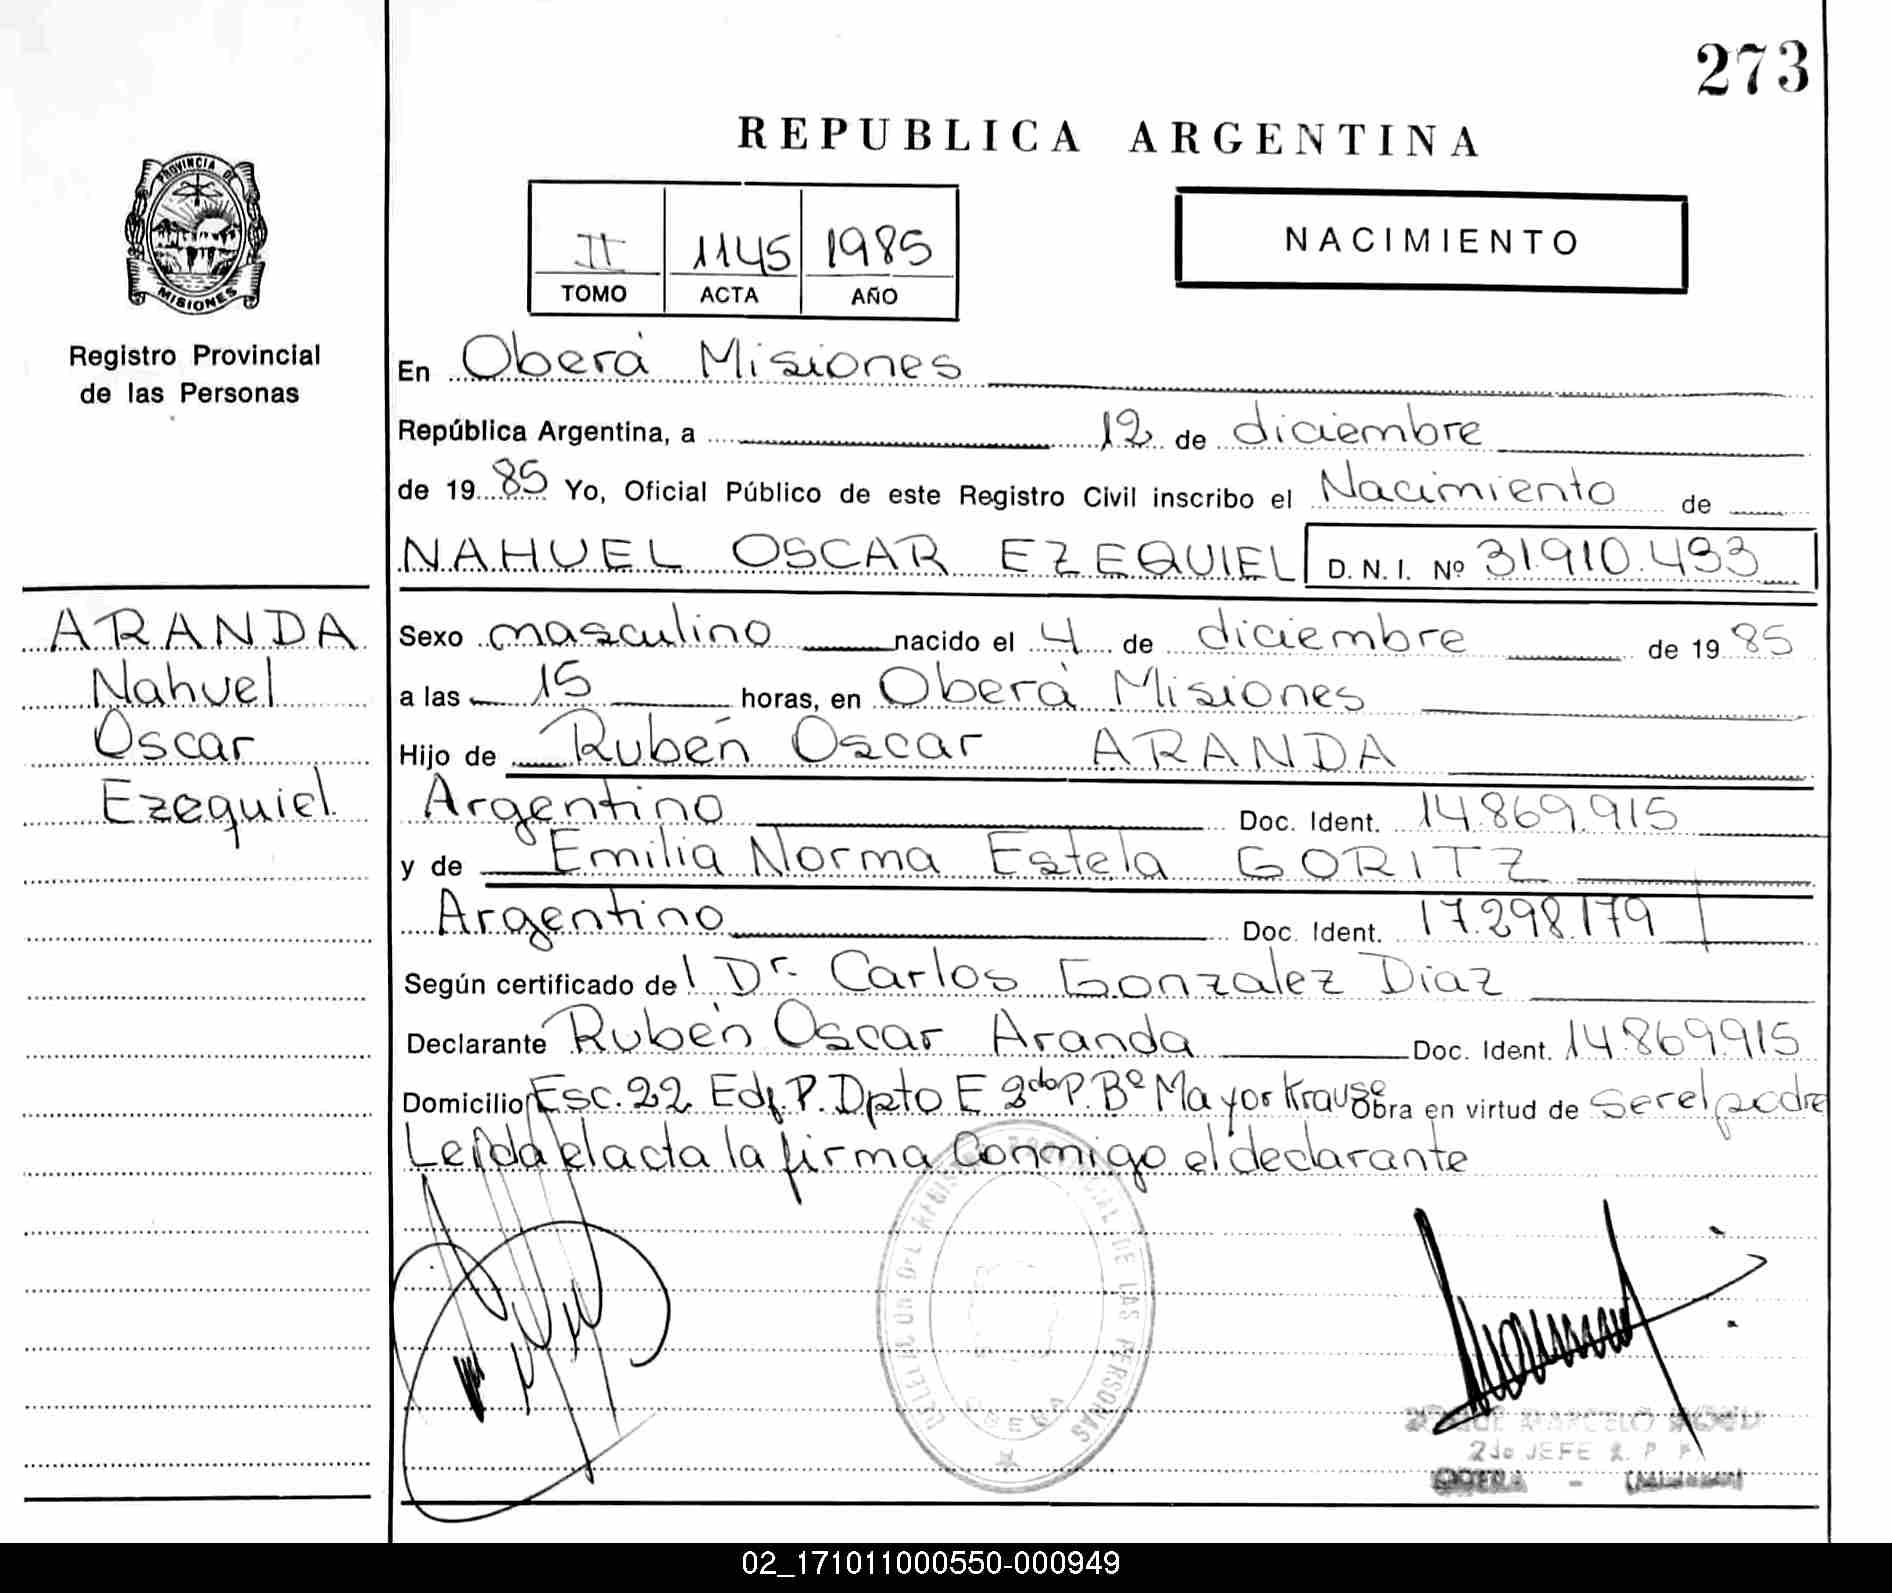 273
REPUBLICA ARGENTINA
PROVINCIA DE
MISIONES
Registro Provincial
de las Personas
II 1145 1985
TOMO ACTA AÑO
NACIMIENTO
En Oberá Misiones
República Argentina, a 12 de diciembre
de 1985 Yo, Oficial Público de este Registro Civil inscribo el Nacimiento de
NAHUEL OSCAR EZEQUIEL D. N. I. Nº 31.910.493
ARANDA
Nahuel
Oscar
Ezequiel
Sexo masculino nacido el 4 de diciembre de 1985
a las 15 horas, en Oberá Misiones
Hijo de Rubén Oscar ARANDA
Argentino Doc. Ident. 14.869.915
y de Emilia Norma Estela GORITZ
Argentino Doc. Ident. 17.298.179
Según certificado del Dr. Carlos Gonzalez Diaz
Declarante Rubén Oscar Aranda Doc. Ident. 14.869.915
Domicilio Esc. 22 Edf. P. Dpto E 2do P. Bº Mayor Krause Obra en virtud de ser el padre
Leída el acta la firma conmigo el declarante
DE LAS PERSONAS
2do JEFE R. P. P.
02_171011000550-000949